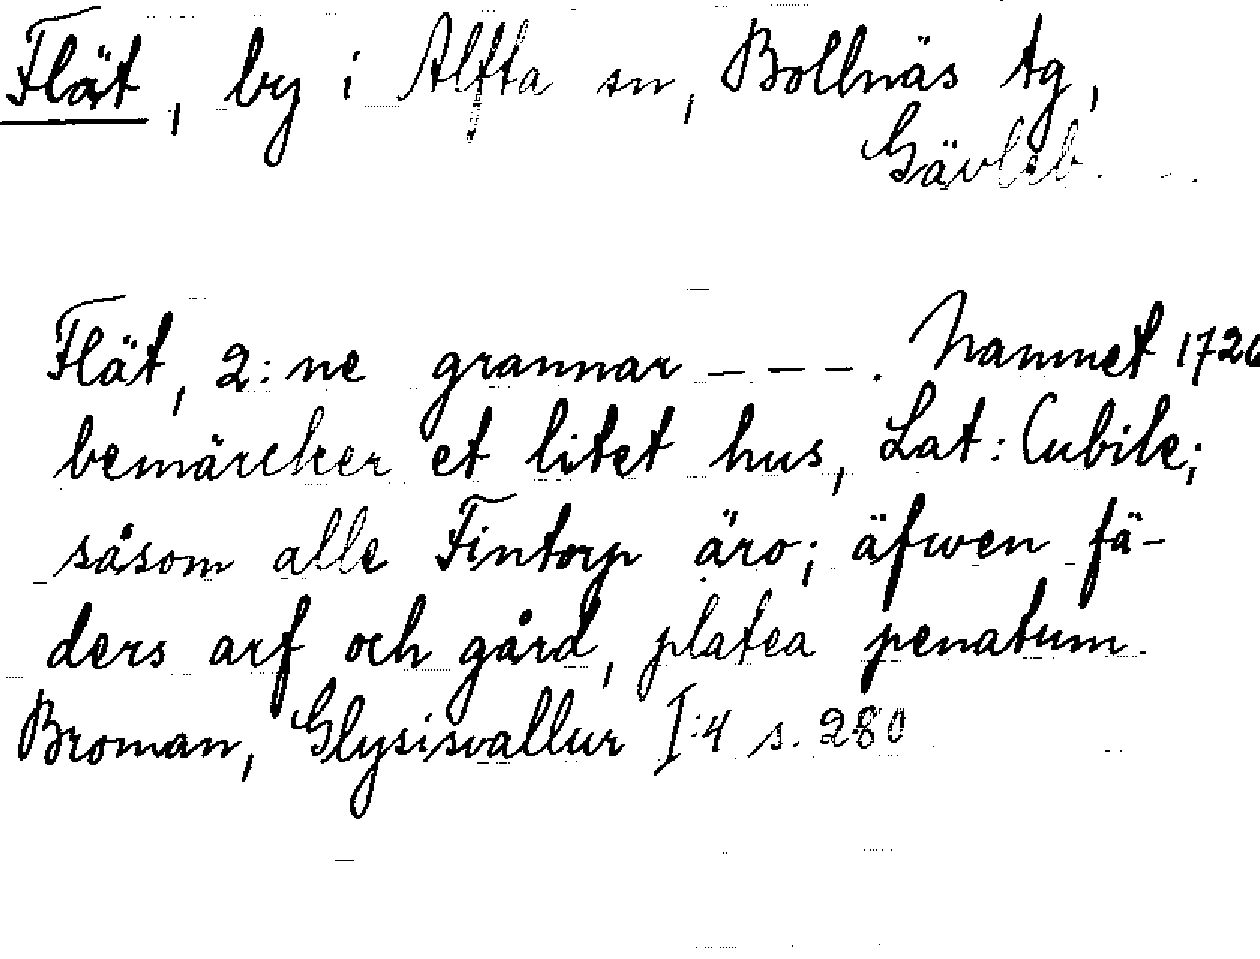 Flät, by i Alfta sn, Bollnäs tg,
Gävleb.
Flät, 2:ne grannar – – – –. Namnet 1726
bemärcker et litet hus, Lat: Cubile;
såsom alle Fintorp äro; äfwen fä-
ders arf och gård, platea penatum.
Broman, Glysisvallur I:4 s. 280